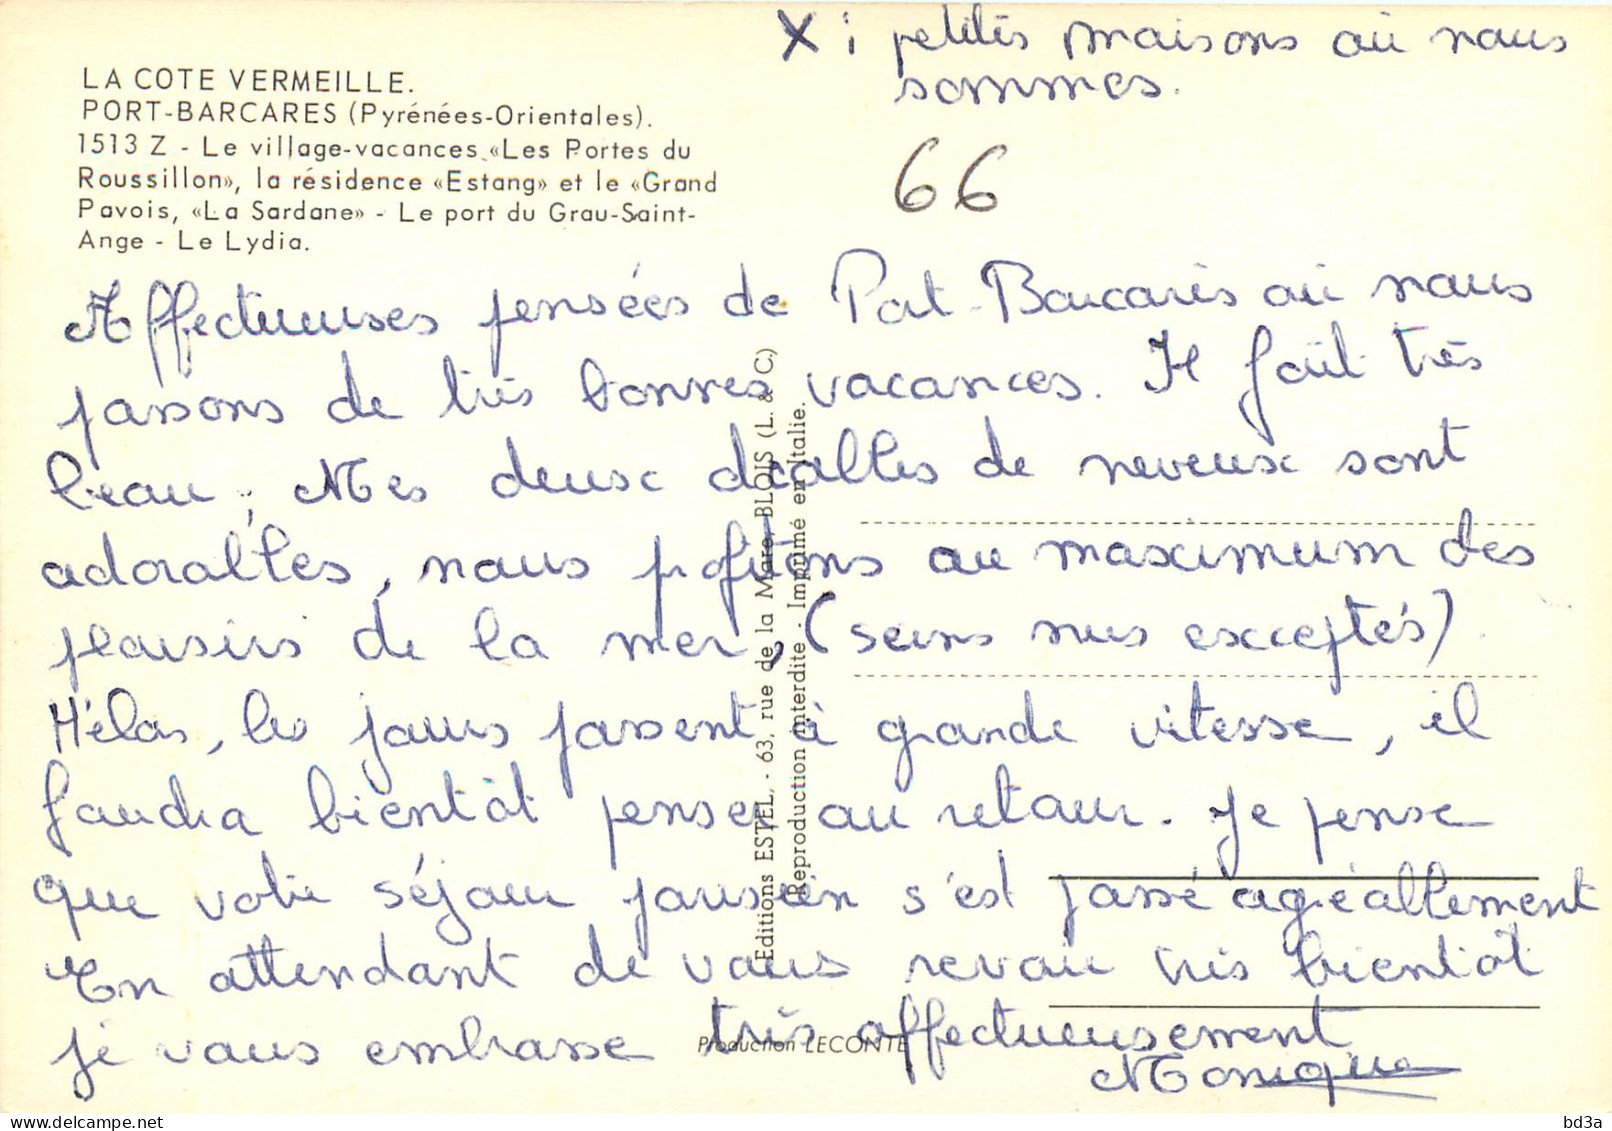 X : petites maisons où nous
sommes.
LA COTE VERMEILLE.
PORT-BARCARES (Pyrénées-Orientales).
1513 Z - Le village-vacances «Les Portes du
Roussillon», la résidence «Estang» et le «Grand
Pavois, «La Sardane» - Le port du Grau-Saint-
Ange - Le Lydia.
66
Affectueuses pensées de Port-Barcarès où nous
passons de très bonnes vacances. Il fait très
beau, Mes deux diables de neveux sont
adorables, nous profitons au maximum des
plaisirs de la mer, (seins nus exceptés)
Hélas, les jours passent à grande vitesse, il
faudra bientôt penser au retour. Je pense
que votre séjour parisien s'est passé agréablement
En attendant de vous revoir très bientôt
je vous embrasse très affectueusement
Monique
Editions ESTEL, - 63, rue de la Mare, BLOIS (L. & C.)
Reproduction interdite - Imprimé en Italie.
Production LECONTE
bd3a